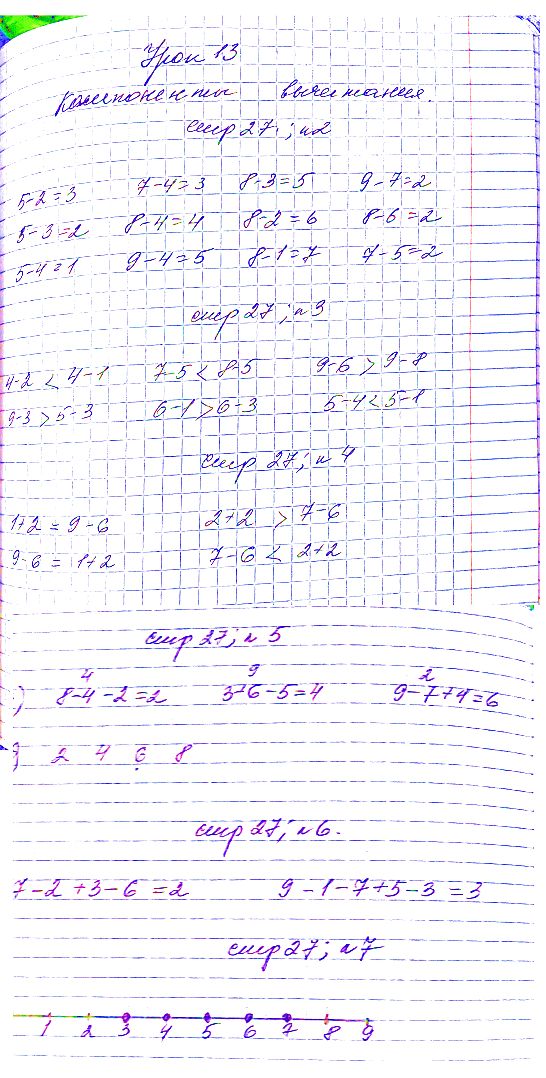 Урок 13
Компоненты вычитания.
стр 27; n2
5-2=3 7-4=3 8-3=5 9-7=2
5-3=2 8-4=4 8-2=6 8-6=2
5-4=1 9-4=5 8-1=7 7-5=2
стр 27; n3
4-2 < 4-1 7-5 < 8-5 9-6 > 9-8
9-3 > 5-3 6-1 > 6-3 5-4 < 5-1
стр 27; n 4
1+2 = 9-6 2+2 > 7-6
9-6 = 1+2 7-6 < 2+2
стр 27; n 5
4 9 2
) 8-4-2=2 3+6-5=4 9-7+4=6
) 2 4 6 8
стр 27; n6.
7-2+3-6=2 9-1-7+5-3=3
стр 27; n7
1 2 3 4 5 6 7 8 9